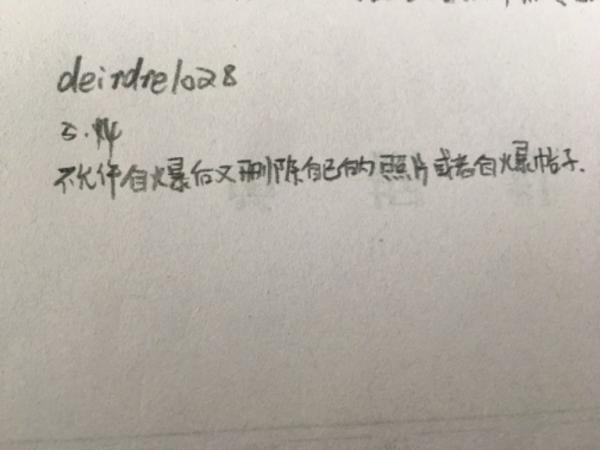 deirdre1028
5.14
不允许自爆后又删除自己的照片或者自爆帖子.